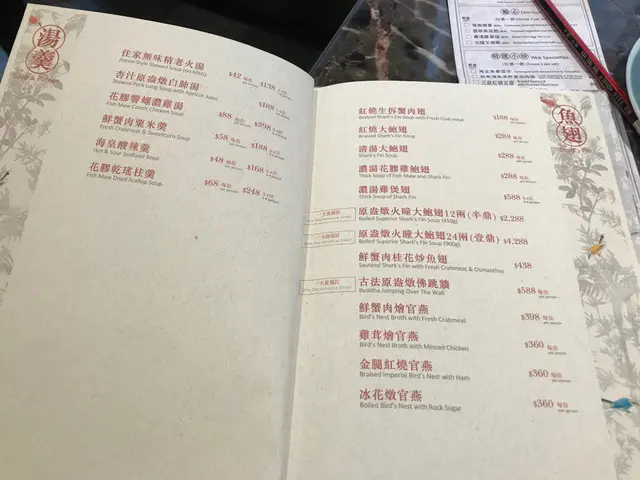 湯羹
住家無味精老火湯 $42 每位 $138
Home-Style Stewed Soup (no MSG) per person
杏汁原盅燉白肺湯 $88 每位 $398
Stewed Pork Lung Soup with Apricot Juice per person
花膠響螺濃雞湯
Fish Maw Conch Chicken Soup
鮮蟹肉粟米羹 $58 每位 $188
Fresh Crabmeat & Sweetcorn Soup per person
海皇酸辣羹 $48 每位 $168
Hot & Sour Seafood Soup per person
花膠乾瑤柱羹 $68 每位 $248
Fish Maw Dried Scallop Soup per person
魚翅
紅燒生拆蟹肉翅 $188 每位
Braised Shark's Fin Soup with Fresh Crab meat per person
紅燒大鮑翅 $288 每位
Braised Shark's Fin Soup per person
清湯大鮑翅 $288 每位
Shark's Fin Soup per person
濃湯花膠雞鮑翅 $288 每位
Thick Soup of Fish Maw and Shark Fin per person
濃湯雞煲翅 $588
Thick Soup of Shark Fin
原盅燉火瞳大鮑翅12兩(半鼎) $2,288
Boiled Superior Shark's Fin Soup (450g)
原盅燉火瞳大鮑翅24兩(壹鼎) $4,288
Boiled Superior Shark's Fin Soup (900g)
鮮蟹肉桂花炒魚翅 $438
Sautéed Shark's Fin with Fresh Crabmeat & Osmanthus
古法原盅燉佛跳牆 $588 每位
Buddha Jumping Over The Wall per person
鮮蟹肉燴官燕 $398 每位
Bird's Nest Broth with Fresh Crabmeat per person
雞茸燴官燕 $360 每位
Bird's Nest Broth with Minced Chicken per person
金腿紅燒官燕 $360 每位
Braised Imperial Bird's Nest with Ham per person
冰花燉官燕 $360 每位
Boiled Bird's Nest with Rock Sugar per person